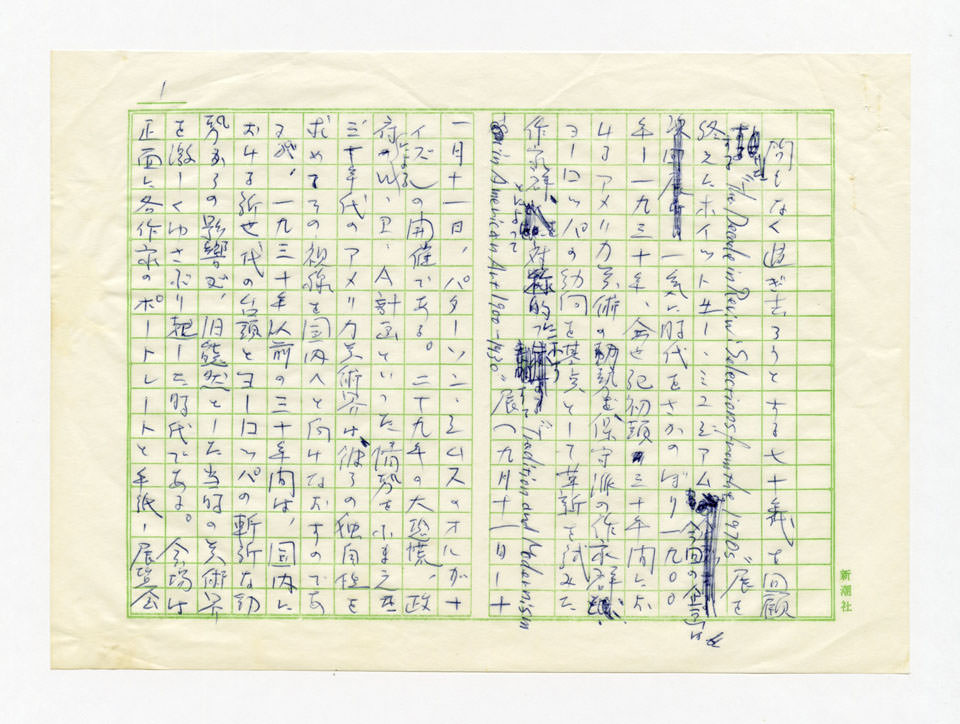 1
間もなく過ぎ去ろうとする七十年代を回顧
する "The Decade in Review: Selections from the 1970s" 展を
終えたホイットニー・ミュージアム 今回の企画は
一気に時代をさかのぼり一九〇〇
年―一九三〇年、今世紀初頭三十年間にお
けるアメリカ美術の動勢を保守派の作家群
ヨーロッパの動向を基点として革新を試みた
作家群 によって対称的に "Tradition and Modernism
in American Art 1900-1930" 展(九月十一日―十
一月十一日、パターソン・シムスのオルガナ
イズによる)の開催である。二十九年の大恐慌、政
府のW.P.A計画といった情勢をふまえた
三十年代のアメリカ美術界は、彼らの独自性を
求めての視線を国内へと向けなおすのであ
るが、一九三十年以前の三十年間は、国内に
おける新世代の台頭とヨーロッパの斬新な動
勢からの影響が、旧態然とした当時の美術界
を激しくゆさぶり起した時代である。会場は
正面に各作家のポートレートと手紙、展覧会
新潮社